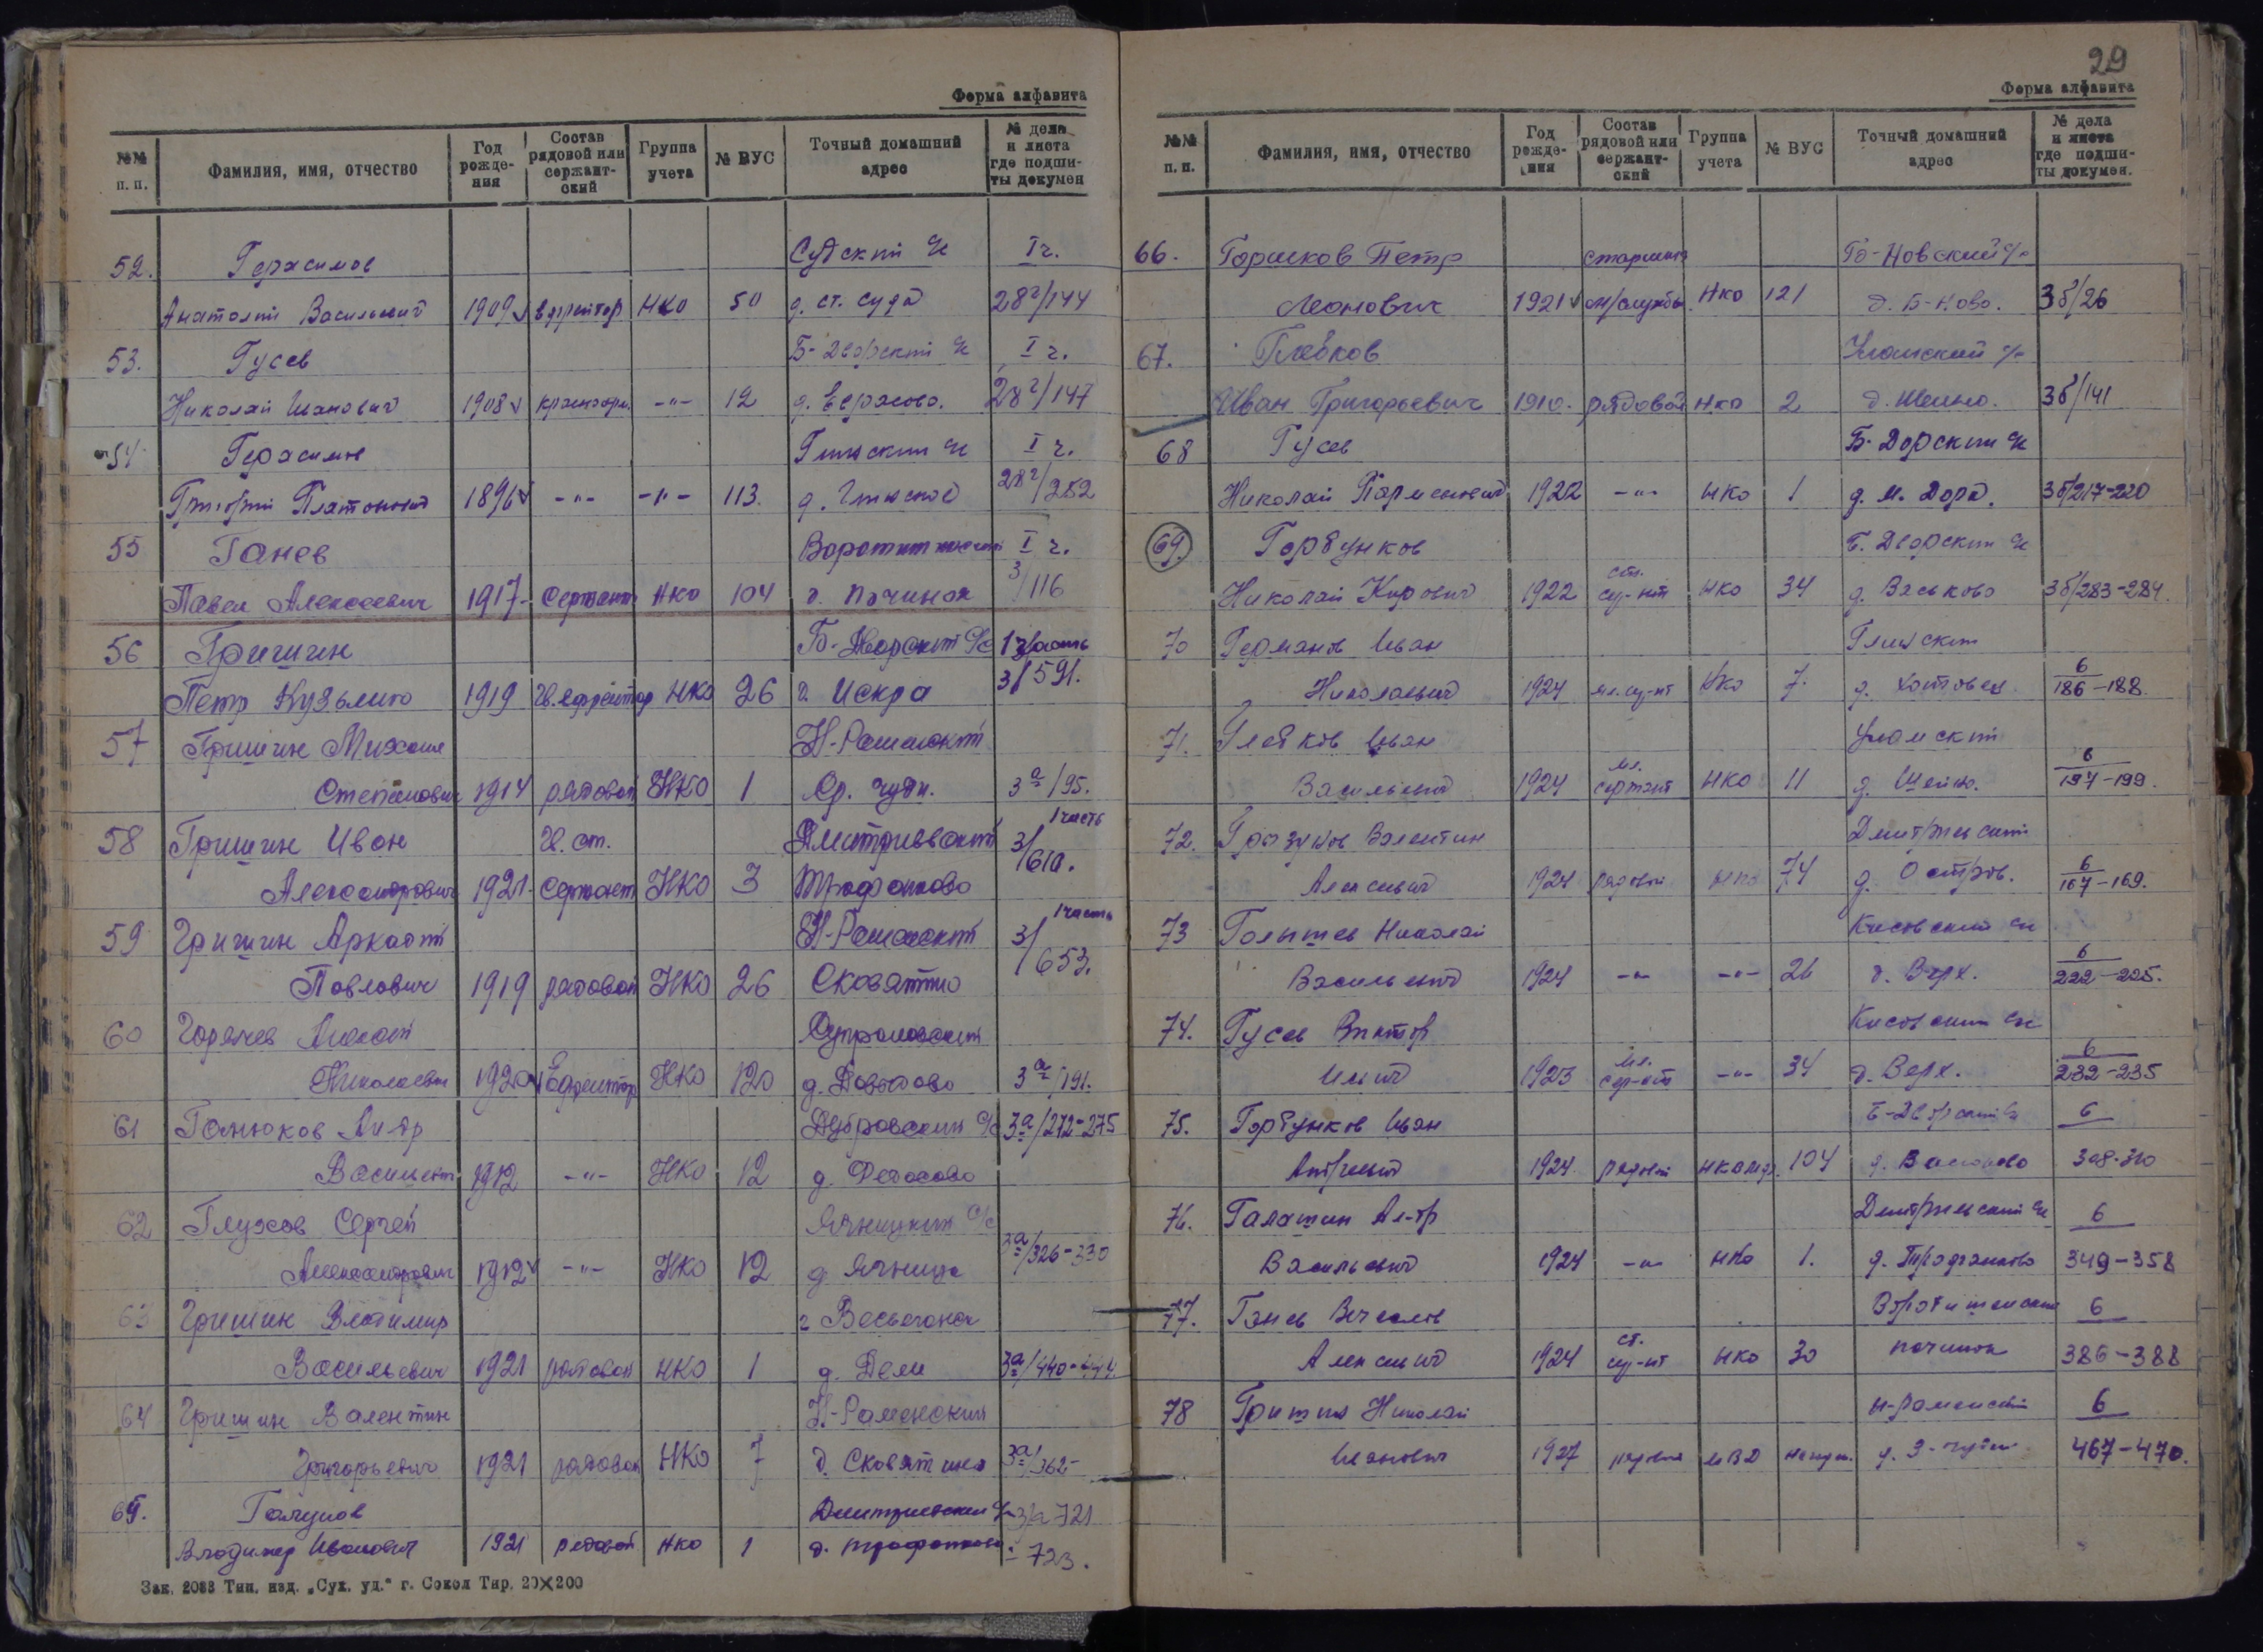 Форма алфавита
№№ п. п. Фамилия, имя, отчество Год рожде- ния Состав рядовой или сержант- ский Группа учета № ВУС Точный домашний адрес № дела и листа где подши- ты докумен
52. Герасимов Судский с/с I ч.
Анатолий Васильевич 1909 ефрейтор НКО 50 д. ст. Суда 28²/144
53. Гусев Б-Дворский с/с I ч.
Николай Иванович 1908 красноарм. -"- 12 д. Ерясово. 28²/147
54 Герасимов I ч.
Григорий Платонович 1896 -"- -"- 113. 28²/252
55 Ганев I ч.
Павел Алексеевич 1917 Сержант НКО 104 д. Починок 3/116
56 Гришин Б-Дворский с/с 1 часть
Петр Кузьмич 1919 Гв. ефрейтор НКО 26 Искра 3/591.
57 Гришин Михаил Н-Раменский
Степанович 1914 рядовой НКО 1 Ср. Чуди. 3а/95.
58 Гришин Иван Гв. ст. Дмитриевский 1 часть
Александрович 1921 Сержант НКО 3 Трофанково 3/610.
59 Гришин Аркадий Н-Раменский 1 часть
Павлович 1919 рядовой НКО 26 Сковятино 3/653.
60 Горячев Алексей
Николаевич 1920 Ефрейтор НКО 120 д. Давыдово 3а/191.
61 Ганюков Ал-др Дубровский с/с 3а/272-275
Васильевич 1912 -"- НКО 12 д. Федосово
62 Глухов Сергей Ягницкий с/с
Александрович 1912 -"- НКО 12 д. Ягница 3а/326-330
63 Гришин Владимир г Весьегонск
Васильевич 1921 рядовой НКО 1 д. Дели 3а/440-444.
64 Гришин Валентин Н-Раменский
Григорьевич 1921 рядовой НКО 7 д. Сковятино 3а/362-
65. Галунов Дмитриевский с/с 3/а 721
Владимир Иванович 1921 рядовой НКО 1 д. Трофанково - 723.
Зак. 2088 Тип. изд. „Сух. уд.“ г. Сокол Тир. 20×200
29
Форма алфавита
№№ п. п. Фамилия, имя, отчество Год рожде- ния Состав рядовой или сержант- ский Группа учета № ВУС Точный домашний адрес № дела и листа где подши- ты докумен.
66. Горшков Петр старшина Б-Новский с/с
Леонович 1921 м/службы НКО 121 д. Б-Ново. 3б/26
67. Глебков Уломский с/с
Иван Григорьевич 1910. рядовой НКО 2 д. Шеино. 3б/141
68 Гусев Б-Дорский с/с
Николай Парменович 1922 -"- НКО 1 д. М. Дора. 3б/217-220
69. Горбунков Б. Дворский с/с
Николай Кирович 1922 ст. с-нт НКО 34 д. Васьково 3б/283-284.
70 Германов Иван
Николаевич 1924 мл. с-нт НКО 7. 6/186-188
71. Глебков Иван Уломский
Васильевич 1924 мл. сержант НКО 11 д. Шеино. 6/197-199.
72. Валентин Дмитриевский
Алексеевич 1924 рядовой НКО 74 д. Остров. 6/167-169.
73 Голышев Николай Кисовский с/с
Васильевич 1924 -"- -"- 26 д. Верх. 6/222-225.
74. Гусев Виктор Кисовский с/с
Ильич 1923 мл. сер-нт -"- 34 д. Верх. 6/232-235
75. Горбунков Иван Б-Дворский с/с 6
Андреевич 1924 рядовой 104 д. Васьково 308-310
76. Галашин Ал-др Дмитриевский с/с 6
Васильевич 1924 -"- НКО 1. д. Трофанково 349-358
77. Ганев Вячеслав 6
Алексеевич 1924 ст. с-нт НКО 30 Починок 386-388
78 Гришин Николай Н-Раменский 6
Иванович 1927 рядовой МВД 467-470.